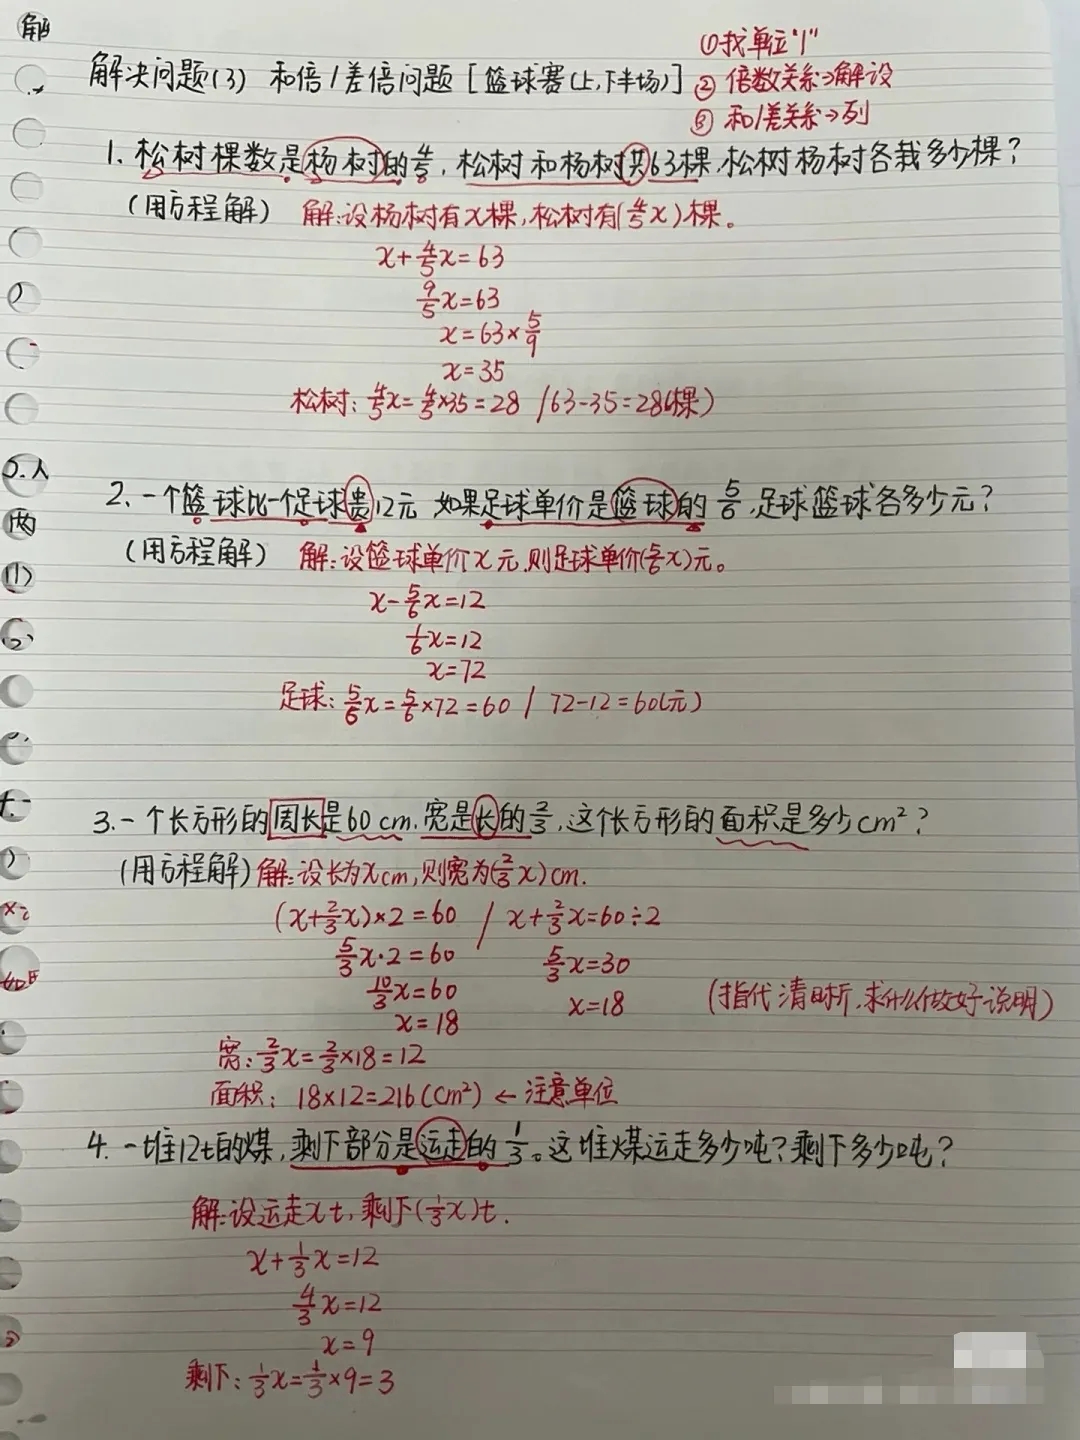 解决问题(3) 和倍/差倍问题[篮球赛(上,下半场)]
①找单位"1"
②倍数关系→解设
③和/差关系→列
1.松树棵数是杨树的4/5,松树和杨树共63棵,松树杨树各栽多少棵?
(用方程解) 解:设杨树有x棵,松树有(4/5x)棵。
x+4/5x=63
9/5x=63
x=63×5/9
x=35
松树:4/5x=4/5×35=28 /63-35=28(棵)
2.一个篮球比一个足球贵12元 如果足球单价是篮球的5/6,足球篮球各多少元?
(用方程解) 解:设篮球单价x元,则足球单价(5/6x)元。
x-5/6x=12
1/6x=12
x=72
足球:5/6x=5/6×72=60 / 72-12=60(元)
3.一个长方形的周长是60cm.宽是长的2/3,这个长方形的面积是多少cm²?
(用方程解)解:设长为xcm,则宽为(2/3x)cm.
(x+2/3x)×2=60 / x+2/3x=60÷2
5/3x·2=60 5/3x=30
10/3x=60 x=18 (指代清晰,求什么做好说明)
x=18
宽:2/3x=2/3×18=12
面积:18×12=216(cm²)←注意单位
4.一堆12t的煤,剩下部分是运走的1/3。这堆煤运走多少吨?剩下多少吨?
解:设运走xt,剩下(1/3x)t.
x+1/3x=12
4/3x=12
x=9
剩下:1/3x=1/3×9=3